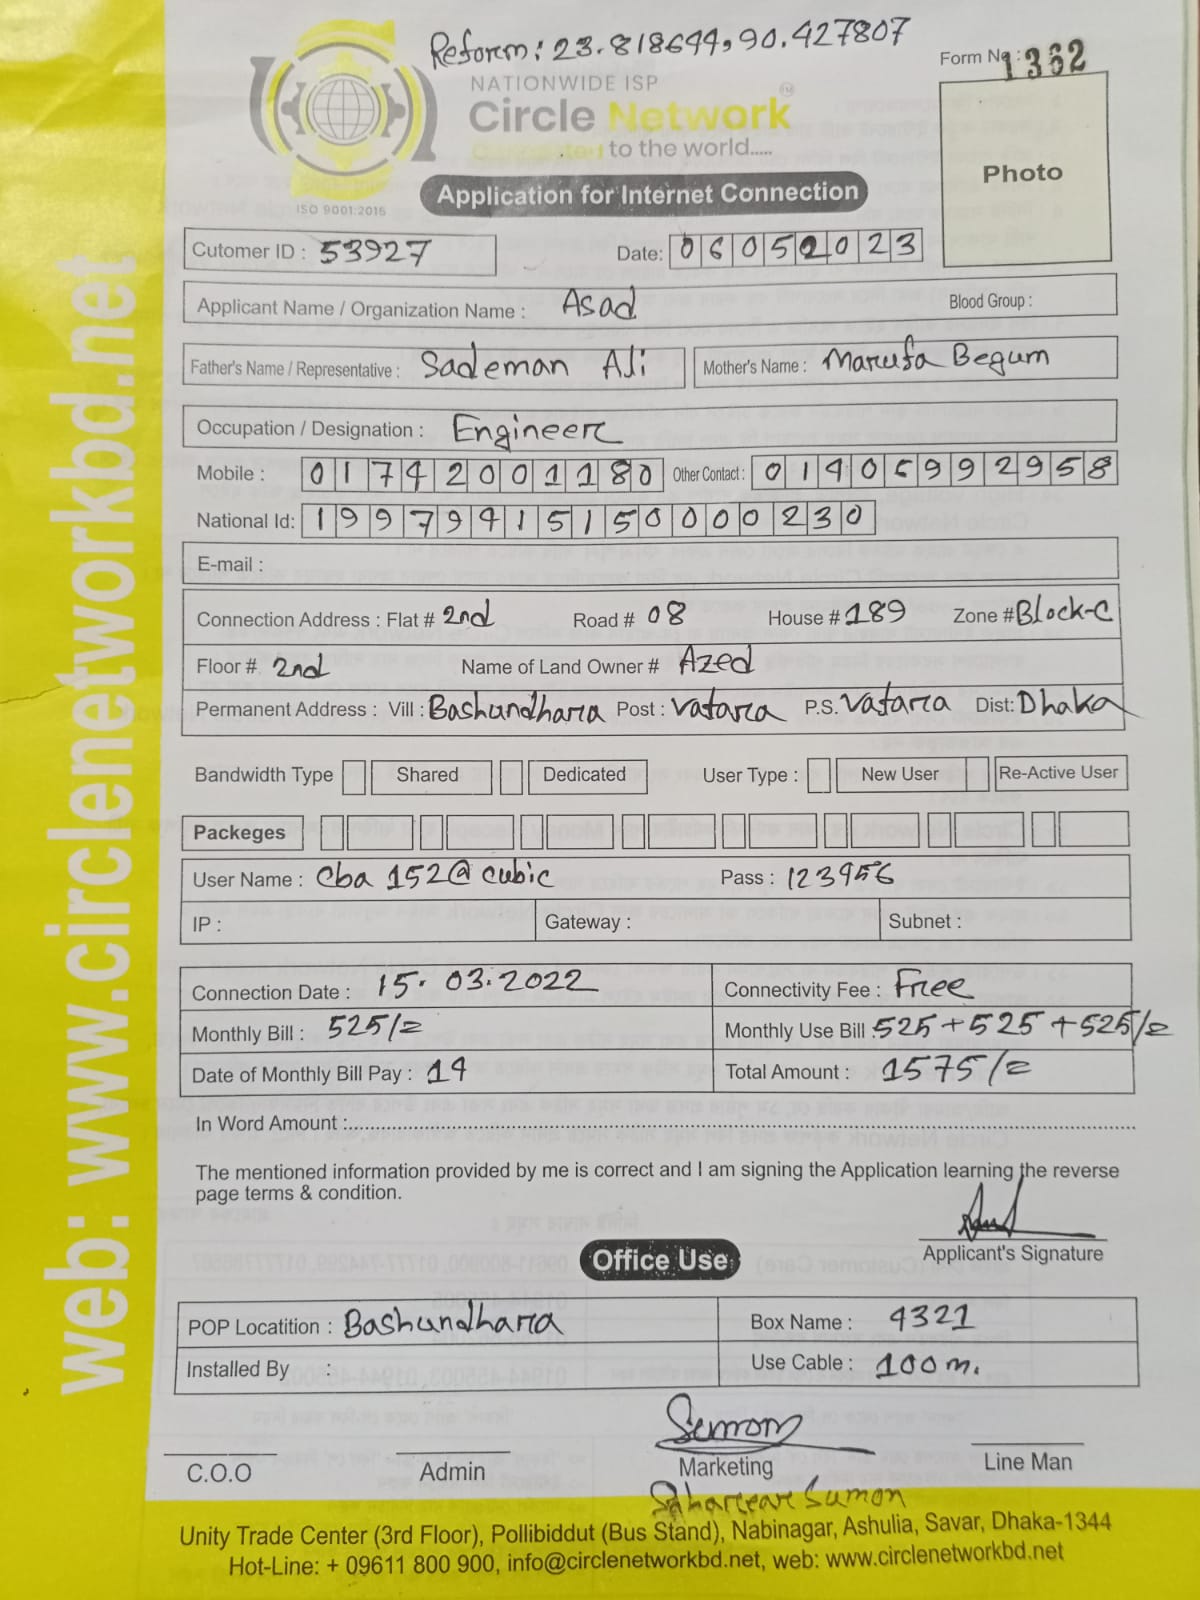 Reform: 23.818644, 90.427807
Form No : 1362
NATIONWIDE ISP
Circle Network
Connected to the world.....
ISO 9001:2015
Application for Internet Connection
Photo
Cutomer ID : 53927
Date: 06052023
Applicant Name / Organization Name : Asad
Blood Group :
Father's Name / Representative : Sademan Ali
Mother's Name : Marufa Begum
Occupation / Designation : Engineer
Mobile : 01742001180 Other Contact : 01405992958
National Id: 19979415150000230
E-mail :
Connection Address : Flat # 2nd Road # 08 House # 189 Zone # Block-C
Floor # 2nd Name of Land Owner # Azed
Permanent Address : Vill : Bashundhara Post : Vatara P.S. Vatara Dist: Dhaka
Bandwidth Type Shared Dedicated User Type : New User Re-Active User
Packeges
User Name : cba 152@cubic Pass : 123456
IP : Gateway : Subnet :
Connection Date : 15.03.2022 Connectivity Fee : Free
Monthly Bill : 525/= Monthly Use Bill : 525+525+525/=
Date of Monthly Bill Pay : 14 Total Amount : 1575/=
In Word Amount :
The mentioned information provided by me is correct and I am signing the Application learning the reverse
page terms & condition.
Applicant's Signature
Office Use
POP Locatition : Bashundhara Box Name : 4321
Installed By : Use Cable : 100 m.
Sumon
C.O.O Admin Marketing Line Man
Sahareear Sumon
Unity Trade Center (3rd Floor), Pollibiddut (Bus Stand), Nabinagar, Ashulia, Savar, Dhaka-1344
Hot-Line: + 09611 800 900, info@circlenetworkbd.net, web: www.circlenetworkbd.net
web: www.circlenetworkbd.net